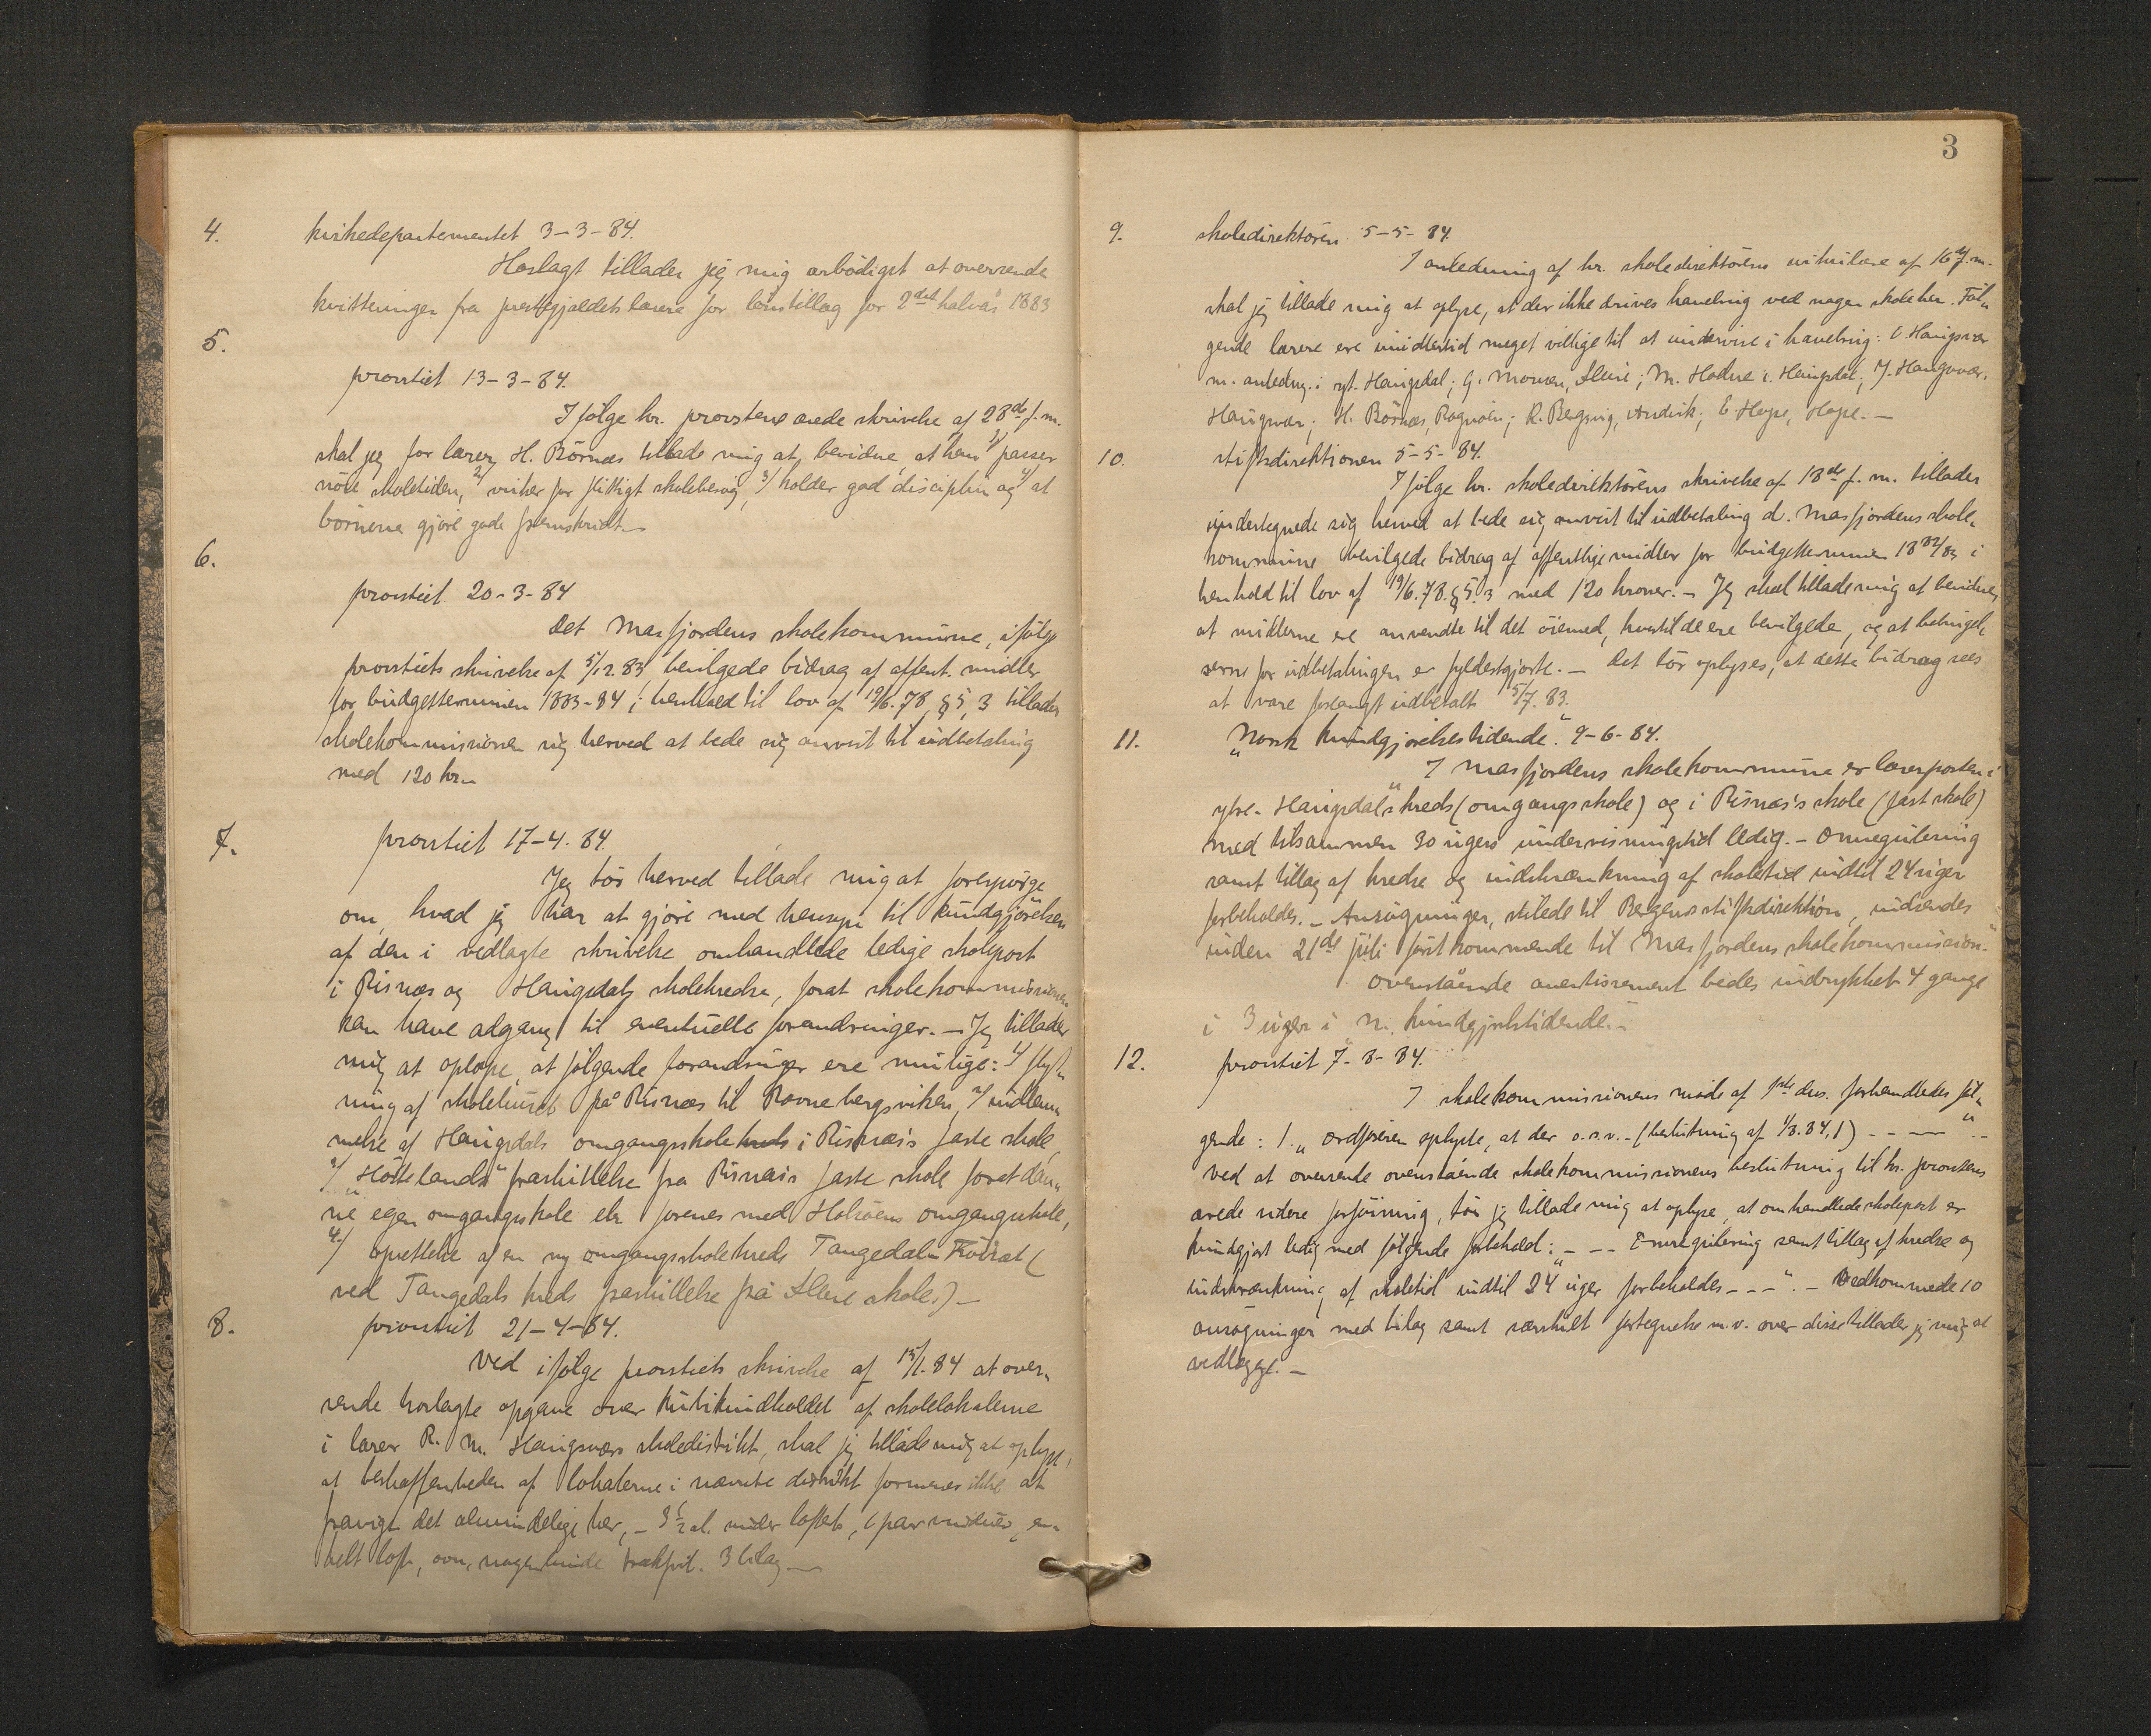 4. kirkedepartementet 3-3-84.
Hoslagt tillader jeg mig ærbödigst at oversende
kvitteringer fra præstegjældets lærere for lönstillæg for 2det halvår 1883
5.
provstiet 13-3-84.
Ifölge hr. provstens ærede skrivelse af 28de f. m.
skal jeg for lærer H. Börnæs tillade mig at bevidne, at han 1/ passer
nöie skoletiden, 2/ virker for flittigt skolebesög, 3/ holder god disciplin og 4/ at
börnene gjöre gode fremskridt. –
6.
provstiet. 20-3-84
Det Masfjordens skolekommune, ifölge
provstiets skrivelse af 5/12.83, bevilgede bidrag af offent. midler
for budgetterminen 1883-84 i henhold til lov af 19/6.78, § 5, 3 tillader
skolekommissionen sig herved at bede sig anvist til udbetaling
med 120 kr. –
7. provstiet 17-4.84.
Jeg tör herved tillade mig at forespörge
om, hvad jeg har at gjöre med hensyn til kundgjörelsen
af den i vedlagte skrivelse omhandlede ledige skolepost
i Risnæs og Haugsdals skolekredse, forat skolekommissionen
kan have adgang til eventuelle forandringer. – Jeg tillader
mig at oplyse, at fölgende forandringer ere mulige: 1/ flyt„
ning af skolehuset på Risnæs til Ravnebergsviken, 2/ indlem„
melse af Haugsdals omgangsskolekreds i Risnæs's faste skole,
3/ „Höttelands“ fraskillelse fra Risnæs's faste skole forat dan„
ne egen omgangsskole elr forenes med Holsöens omgangsskole,
4/ oprettelse af en ny omgangsskolekreds Tangedal-Kvörat (
ved Tangedals kreds fraskillelse frå Sleire skole.) –
8. provstiet 21-4-84.
Ved ifölge provstiets skrivelse af 15/1.84 at over„
sende hoslagte opgave over kubikindholdet af skolelokalerne
i lærer R. M. Haugsværs skoledistrikt, skal jeg tillade mig at oplyse,
at beskaffenheden af lokalerne i nævnte distrikt formenes ikke at
fravige det almindelige her, – 3 1/2 al. under loftet, 1 par vinduer, en„
kelt loft, ovn, nogenlunde trækfrit. 3 bilag –
3
9. skoledirektören 5-5-84.
I anledning af hr. skoledirektörens cirkulære af 16de f. m.
skal jeg tillade mig at oplyse, at der ikke drives havebrug ved nogen skole her. Föl„
gende lærere ere imidlertid meget villige til at undervise i havebrug: O. Haugsvær
m. anledng. i yt. Haugsdal; G. Mowen, Sleire; M. Hodne i. Haugsdal; J. Haugsvær,
Haugsvær; H. Börnæs, Ragnöen; R. Bergsvig, Andvik; E. Hope, Hope. –
10. stiftsdirektionen 5-5-84.
Ifölge hr. skoledirektörens skrivelse af 18de f. m. tillader
undertegnede sig herved at bede sig anvist til udbetaling d. Masfjordens skole„
kommune bevilgede bidrag af offentlige midler for budgetterminen 1882/83 i
henhold til lov af 19/6.78. § 5.3 med 120 kroner. – Jeg skal tillade mig at bevidne,
at midlerne ere anvendte til det öiemed, hvortil de ere bevilgede, og at betingel„
serne for udbetalingen er fyldestgjorte. – Det tör oplyses, at dette bidrag sees
at være forlangt udbetalt 5/7.83.
11. „Norsk kundgjörelsestidende“. 9-6-84.
„I Masfjordens skolekommune er lærerposten i
ytre-Haugsdals kreds (omgangsskole) og i Risnæs's skole (fast skole)
med tilsammen 30 ugers undervisningstid ledig. – Omregulering
samt tillæg af kredse og indskrænkning af skoletid indtil 24 uger
forbeholdes. – Ansögninger, stilede til Bergens stiftsdirektion, indsendes
inden 21de juli förstkommende til Masfjordens skolekommission.“
Ovenstående avertissement bedes indrykket 4 gange
i 3 uger i n. kundgjörelstidende. –
12. provstiet 7-8-84.
I skolekommissionens möde af 1ste ds. forhandledes föl„
gende: 1. „Ordföreren oplyste, at der o.s.v. – (beslutning af 1/8.84,1) – – – “ . –
Ved at oversende ovenstående skolekommissionens beslutning til hr. provstens
ærede videre forföining, tör jeg tillade mig at oplyse, at omhandlede skolepost er
kundgjort ledig med fölgende forbehold: „ – – Omregulering samt tillæg af kredse og
indskrænkning af skoletid indtil 24 uger forbeholdes – – – “. – Vedkommende 10
ansögninger med bilag samt særskilt fortegnelse m.v. over disse tillader jeg mig at
vedlægge. –